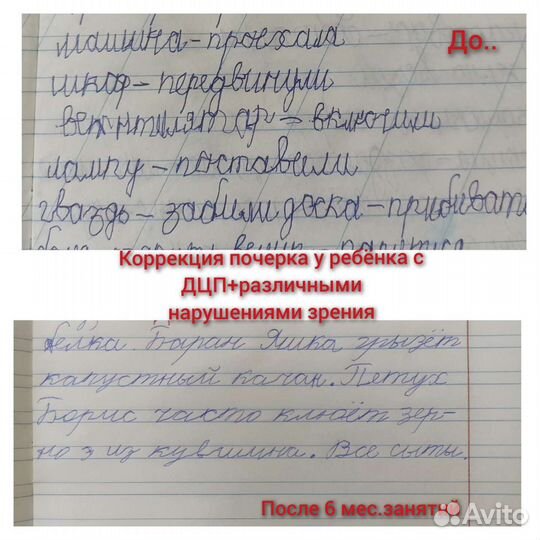 машина – проехала
До..
шкаф – передвинули
включили
лампу – поставили
гваздь – забили доска – прибивать
Коррекция почерка у ребёнка с
ДЦП+различными
нарушениями зрения
белка. Баран Яшка грызёт
капустный качан. Петух
Борис часто клюёт зер-
но з из кувшина. Все сыты.
После 6 мес.занятий
Avito